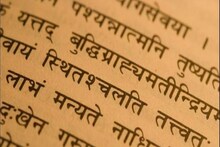 योगसेवया ।
पश्यन्नात्मनि तुष्यति
यत्तद् बुद्धिग्राह्यमतीन्द्रियम
वायं स्थितश्चलति तत्त्वतः
लाभं मन्यते नाधि
दुःखेन